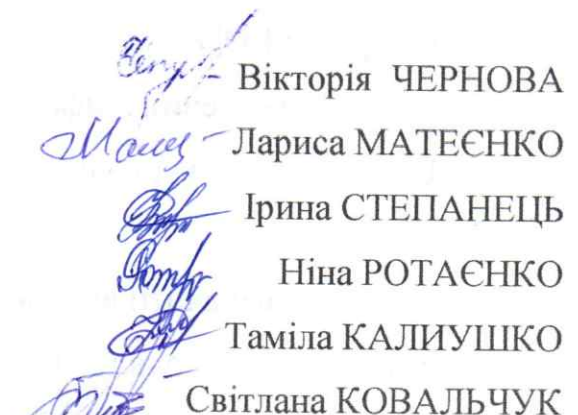 Вікторія ЧЕРНОВА
Лариса МАТЕЄНКО
Ірина СТЕПАНЕЦЬ
Ніна РОТАЄНКО
Таміла КАЛИУШКО
Світлана КОВАЛЬЧУК